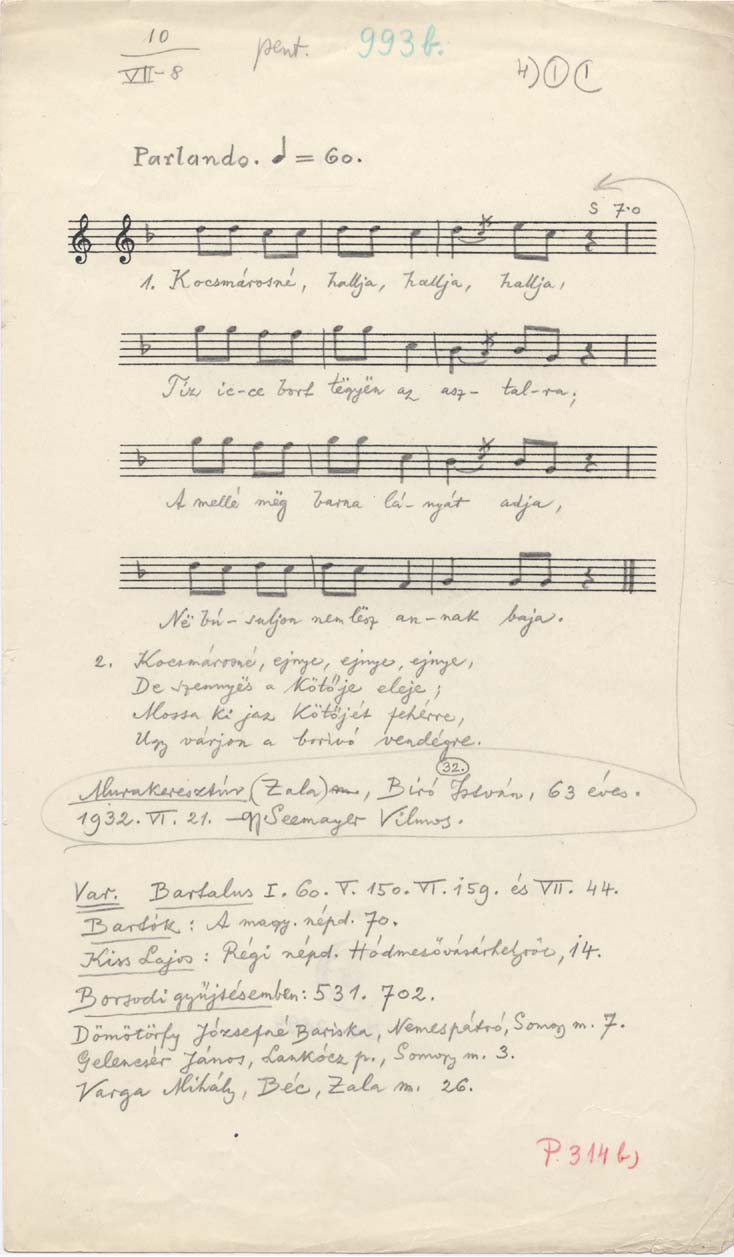 10
VII-8
pent.
993b.
4) 1 1
Parlando. = 60.
S 7·0
1. Kocsmárosné, hallja, hallja, hallja,
Tíz ic-ce bort tëgyën az asz- tal-ra;
A mellé mëg barna lá- nyát adja,
Në bú- suljon nem lësz an- nak baja.
2. Kocsmárosné, ejnye, ejnye, ejnye,
De szennyës a kötője eleje;
Mossa ki jaz kötőjét fehérre,
Ugy várjon a borivó vendégre.
32.
Murakeresztúr (Zala), Bíró István, 63 éves.
1932. VI. 21. Seemayer Vilmos.
Var. Bartalus I. 60. V. 150. VI. 159. és VII. 44.
Bartók: A magy. népd. 70.
Kiss Lajos: Régi népd. Hódmesővásárhelyről, 14.
Borsodi gyűjtésemben: 531. 702.
Dömötörfy Józsefné Bariska, Nemespátró, Somogy m. 7.
Gelencsér János, Lankócz p., Somogy m. 3.
Varga Mihály, Béc, Zala m. 26.
P. 314 b)